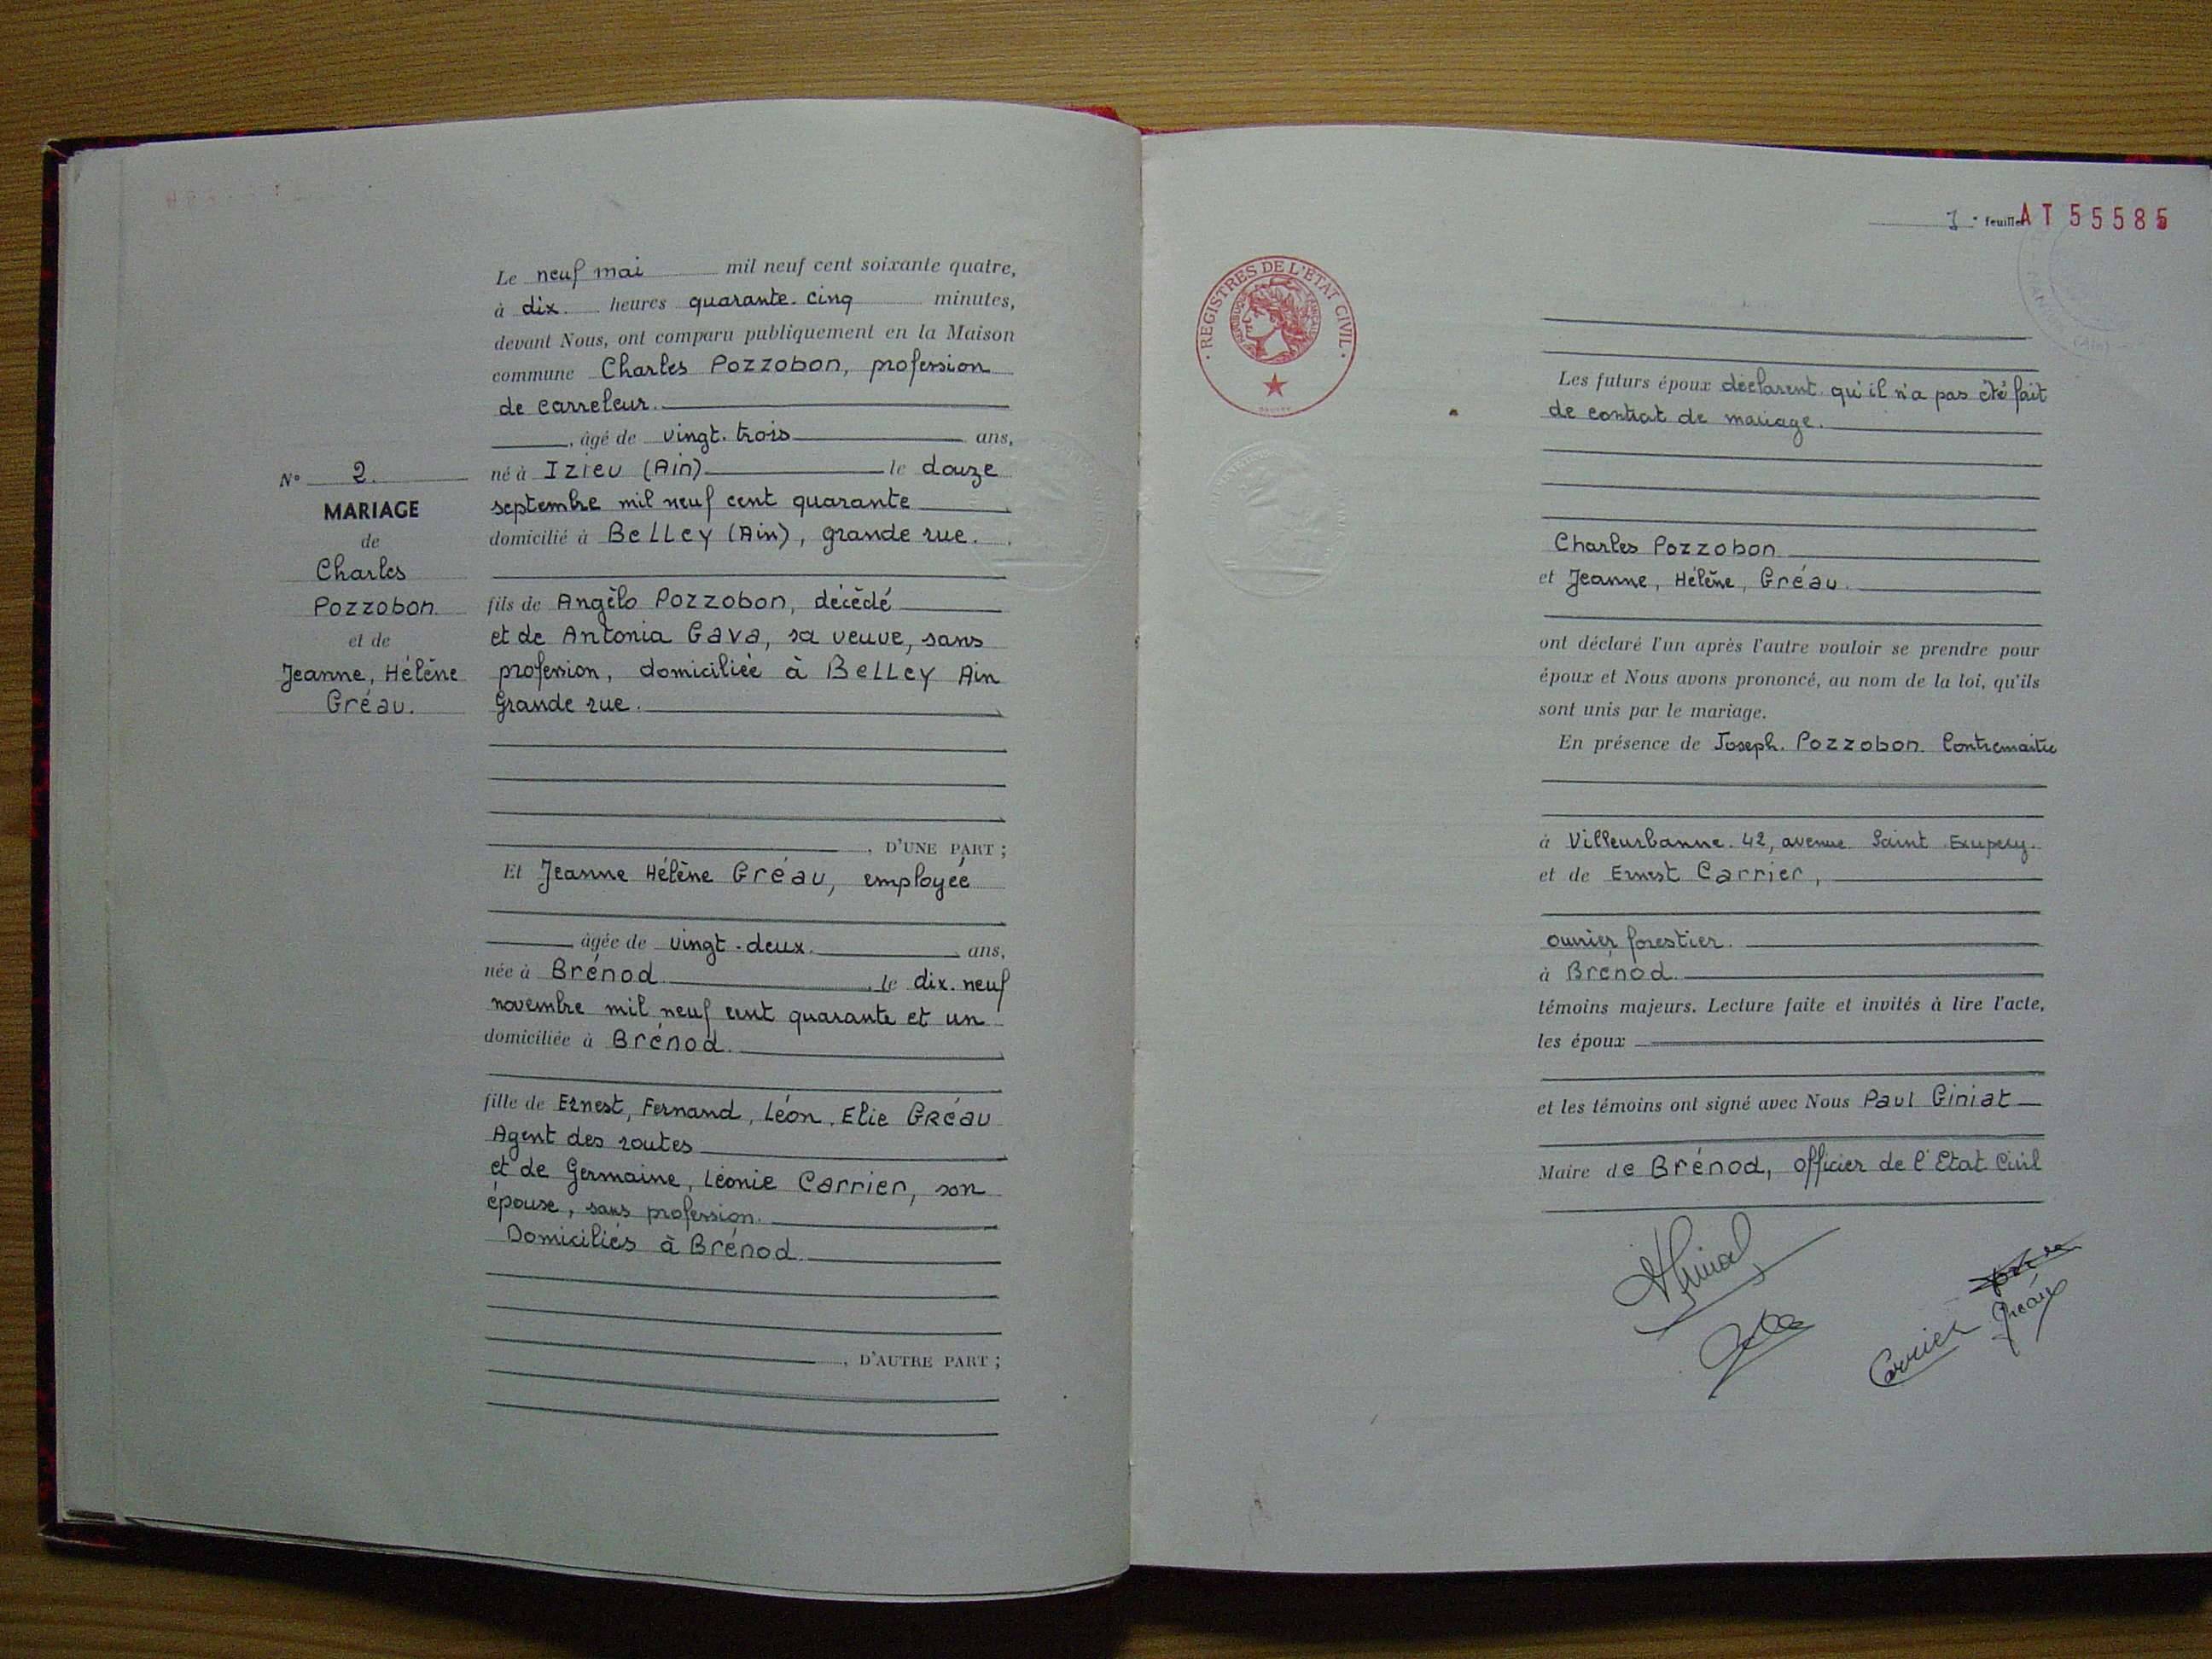 Le neuf mai mil neuf cent soixante quatre,
à dix heures quarante-cinq minutes,
devant Nous, ont comparu publiquement en la Maison
commune Charles Pozzobon, profession
de carreleur.
, âgé de vingt-trois ans,
né à Izieu (Ain) le douze
septembre mil neuf cent quarante
domicilié à Belley (Ain), grande rue.
fils de Angélo Pozzobon, décédé
et de Antonia Gava, sa veuve, sans
profession, domiciliée à Belley Ain
Grande rue.
, D'UNE PART ;
N° 2.
MARIAGE
de
Charles
Pozzobon
et de
Jeanne, Hélène
Gréau.
Et Jeanne Hélène Gréau, employée
âgée de vingt-deux ans,
née à Brénod, le dix-neuf
novembre mil neuf cent quarante et un
domiciliée à Brénod.
fille de Ernest, Fernand, Léon, Elie GRéau
Agent des routes
et de Germaine, Léonie Carrier, son
épouse, sans profession.
Domiciliés à Brénod
, D'AUTRE PART ;
feuille AT 55585
REGISTRES DE L'ÉTAT CIVIL
RÉPUBLIQUE FRANÇAISE
Les futurs époux déclarent qu'il n'a pas été fait
de contrat de mariage.
Charles Pozzobon
et Jeanne, Hélène, Gréau.
ont déclaré l'un après l'autre vouloir se prendre pour
époux et Nous avons prononcé, au nom de la loi, qu'ils
sont unis par le mariage.
En présence de Joseph Pozzobon Contremaître
à Villeurbanne 42, avenue Saint Exupery
et de Ernest Carrier,
ouvrier forestier.
à Brénod.
témoins majeurs. Lecture faite et invités à lire l'acte,
les époux
et les témoins ont signé avec Nous Paul Giniat
Maire de Brénod, officier de l'Etat Civil
Carrier
Gréau